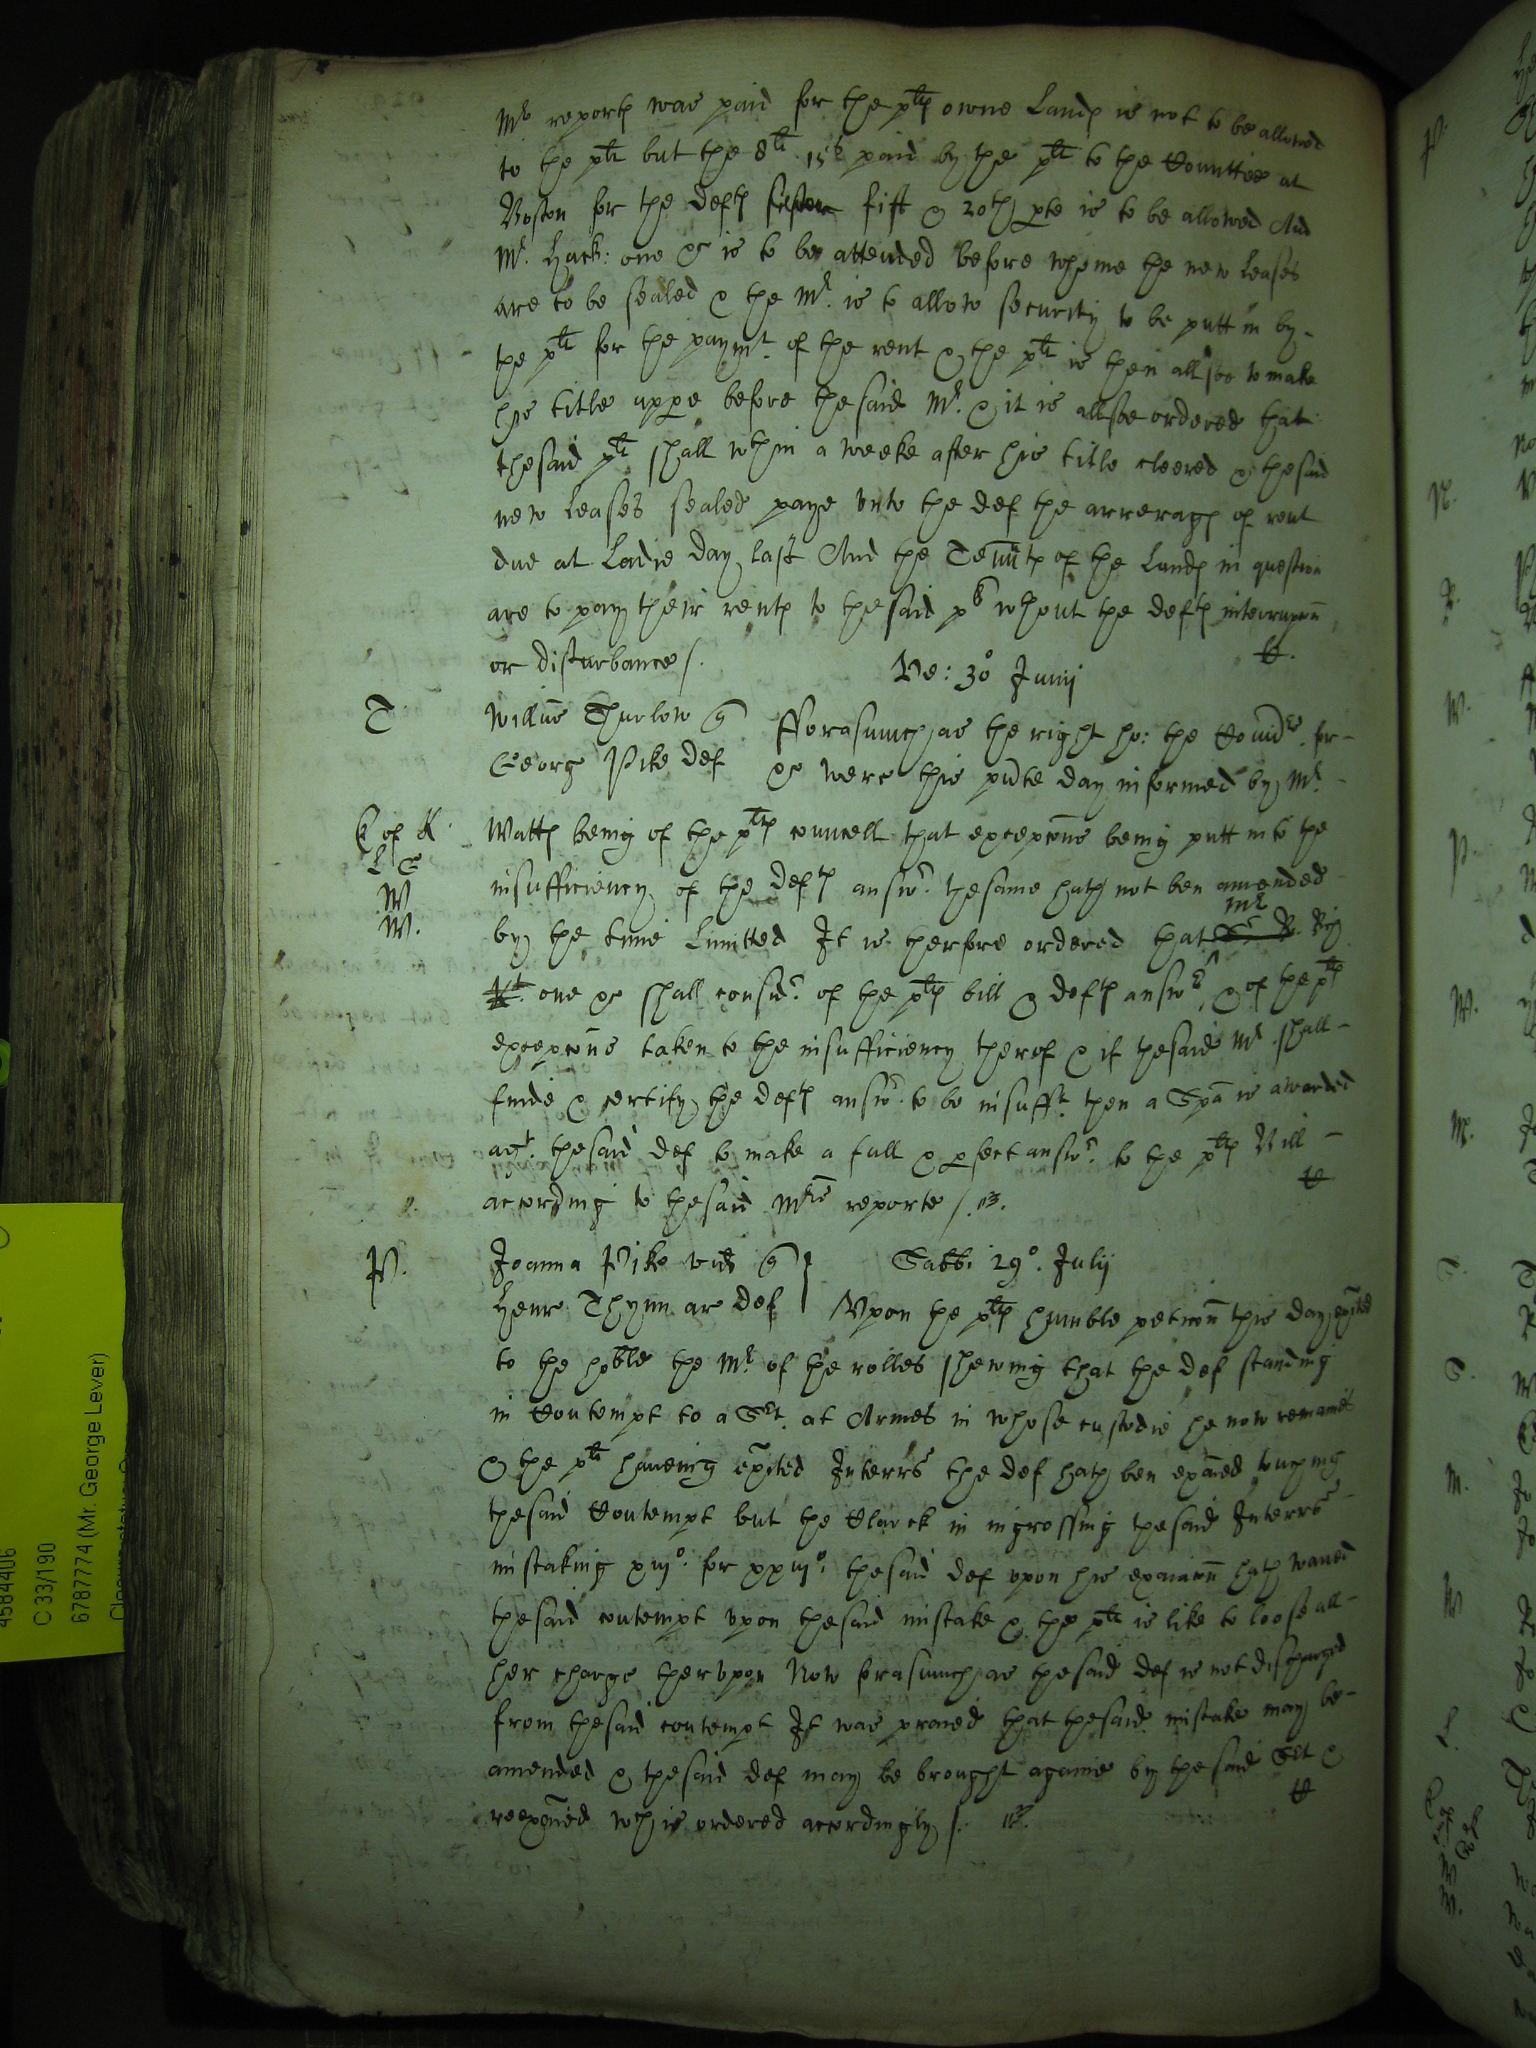 Mr reports was paid for the plts owne Lands is not to be allowed
to the plt but the 8li 15s paid by the plt to the Countie at
Boston for the defts fift & 20th pte is to be allowed And
Mr. Hack: one &c is to be attended before whome the new Leases
are to be sealed & the Mr. is to allow security to be putt in by-
the plt for the paymt. of the rent & the plt is then allsoe to make
his title uppe before thesaid Mr. & it is allsoe ordered that
thesaid plt shall wthin a weeke after his title cleered & thesaid
new Leases sealed paye vnto the def the arrerags of rent
due at Ladie day last And the Tennts of the Lands in question
are to pay their rents to thesaid plt wthout the defts interrupcon
or disturbance /.
Ve: 30o Junij
T
Willus Thurlow q
Georg Pike def
fforasmuch as the right ho: the Comrs. for-
&c were this pnte day informed by Mr.
K of K
L G
W
W.
Watts being of the plts councell that excepcons being putt in to the
insufficiency of the defts answr. thesame hath not ben amended
by the time Limitted It is therfore ordered that Mr Ri
one &c shall considr. of the plts bill & defts answr & of the plts
excepcons taken to the insufficiency therof & if thesaid Mr shall-
finde & certify the defts answr. to be insufft. then a Spa is awarded
agt. thesaid def to make a full & pfect answr. to the plts Bill-
according to thesaid Mrs reporte /.
P.
Joanna Pike vid q
Henr Thynn ar def
Sabb. 29o. Julij
Vpon the plts humble peticon this day exhited
to the hoble the Mr of the rolles shewing that the def standing
in Contempt to a Srt. at Armes in whose custodie he now remaines
& the plt haveing exited Interrs the def hath ben exaied touching
thesaid Contempt but the Clarck in ingrossing thesaid Interrs
mistaking xiijo. for xxiijo. thesaid def vpon his exaiacon hath waved
thesaid contempt vpon thesaid mistake & the plt is like to loose all-
her charge thervpon Now forasmuch as thesaid def is not discharged
from thesaid contempt It was praied that thesaid mistake may be-
amended & thesaid def may be brought againe by thesaid Srt &
reexaied wch is ordered accordingly /.
45844406
C 33/190
6787774 (Mr. George Lever)